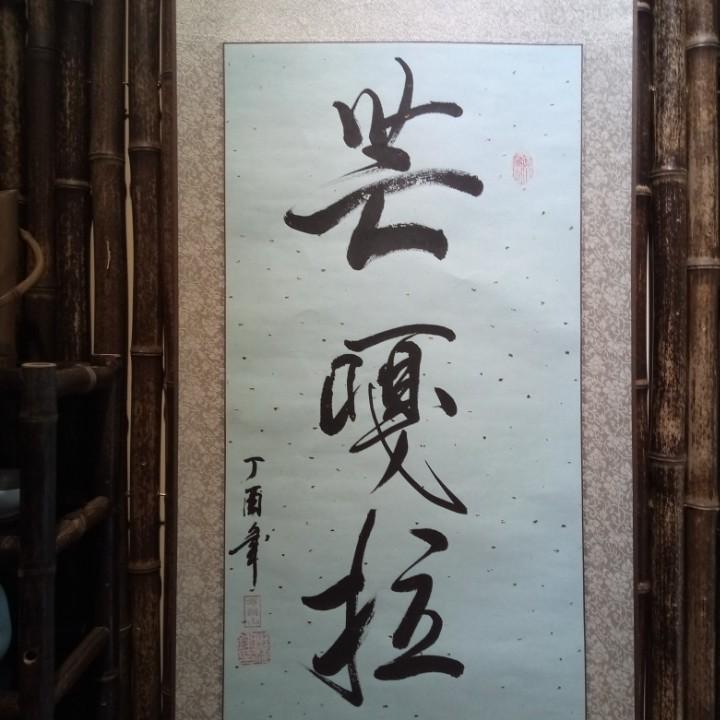 芒嘎拉
丁酉年